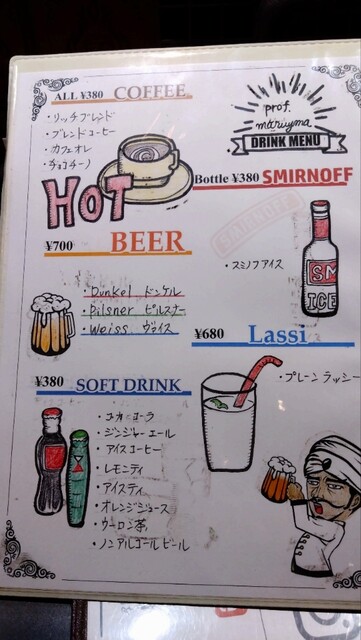 ALL ¥380 COFFEE
・リッチブレンド
・ブレンドコーヒー
・カフェオレ
・チョコチーノ
HOT
prof.
mariyma
DRINK MENU
Bottle ¥380 SMIRNOFF
SMIRNOFF
・スミノフアイス
SM
ICE
¥700 BEER
・Dunkel ドンケル
・Pilsner ピルスナー
・Weiss ヴァイス
¥680 Lassi
・プレーンラッシー
¥380 SOFT DRINK
・コカ・コーラ
・ジンジャーエール
・アイスコーヒー
・レモンティ
・アイスティ
・オレンジジュース
・ウーロン茶
・ノンアルコールビール